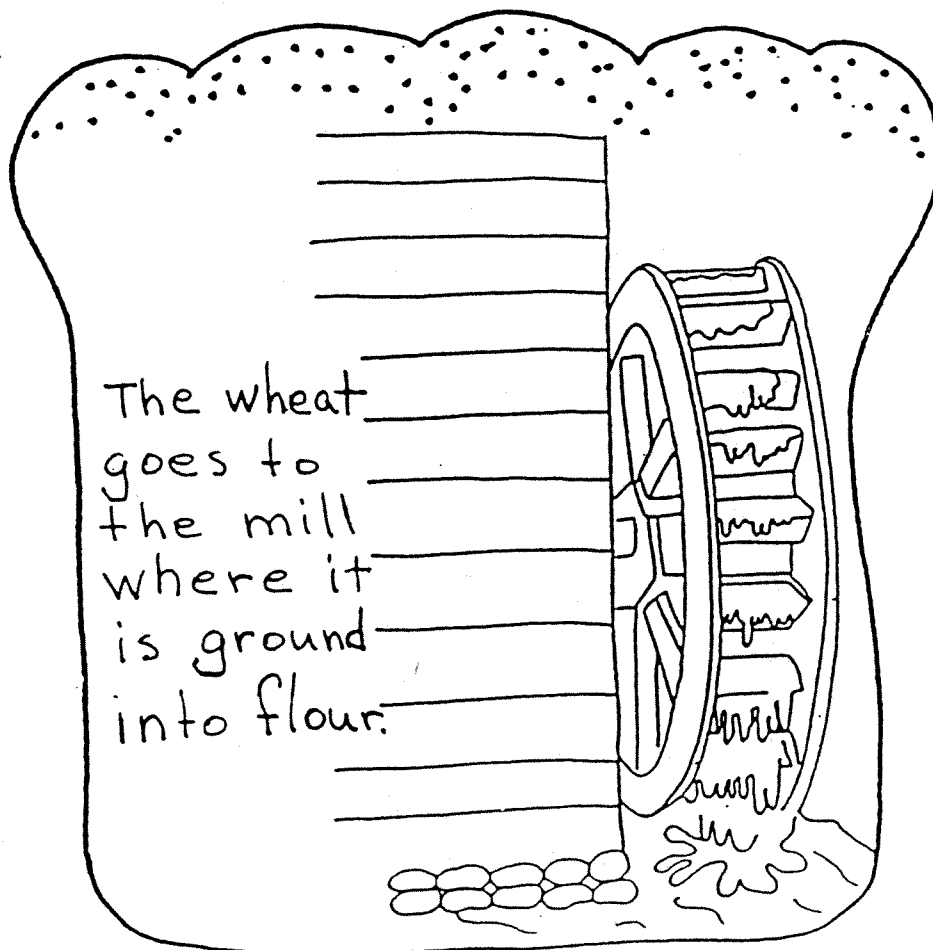 The wheat
goes to
the mill
where it
is ground
into flour.